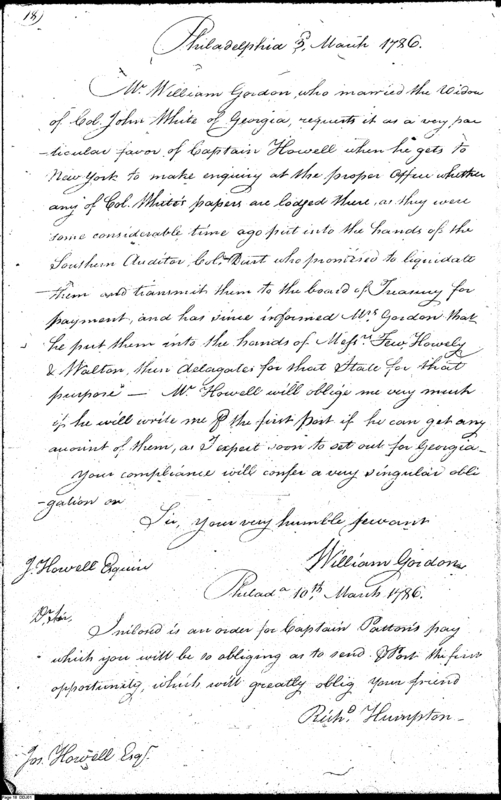 18)
Philadelphia 3, March 1786.
Mr. William Gordon, who married the Widow
of Col. John White of Georgia, requests it as a very par
-ticular favor of Captain Howell when he gets to
New York to make enquiry at the proper Office whether
any of Col. White's papers are lodged there, as they were
some considerable time ago put into the hands of the
Southern Auditor, Col. who promised to liquidate
them and transmit them to the board of Treasury for
payment, and has since informed Mrs. Gordon that
he put them into the hands of Messrs. Few, Howely
& Walton, then delagates for that State for that
purpose — Mr. Howell will oblige me very much
if he will write me ⅌ the first Post if he can get any
account of them, as I expect soon to set out for Georgia —
Your compliance will confer a very singular obli
-gation on
Sir, Your very humble servant
J. Howell Esquire
William Gordon
Philada. 10th. March 1786.
Dr. Sir,
Inclosed is an order for Captain Patton's pay
which you will be so obliging as to send ⅌ Post the first
opportunity, which will greatly oblig Your friend
Richd. Humpton —
Jos. Howell Esqr.